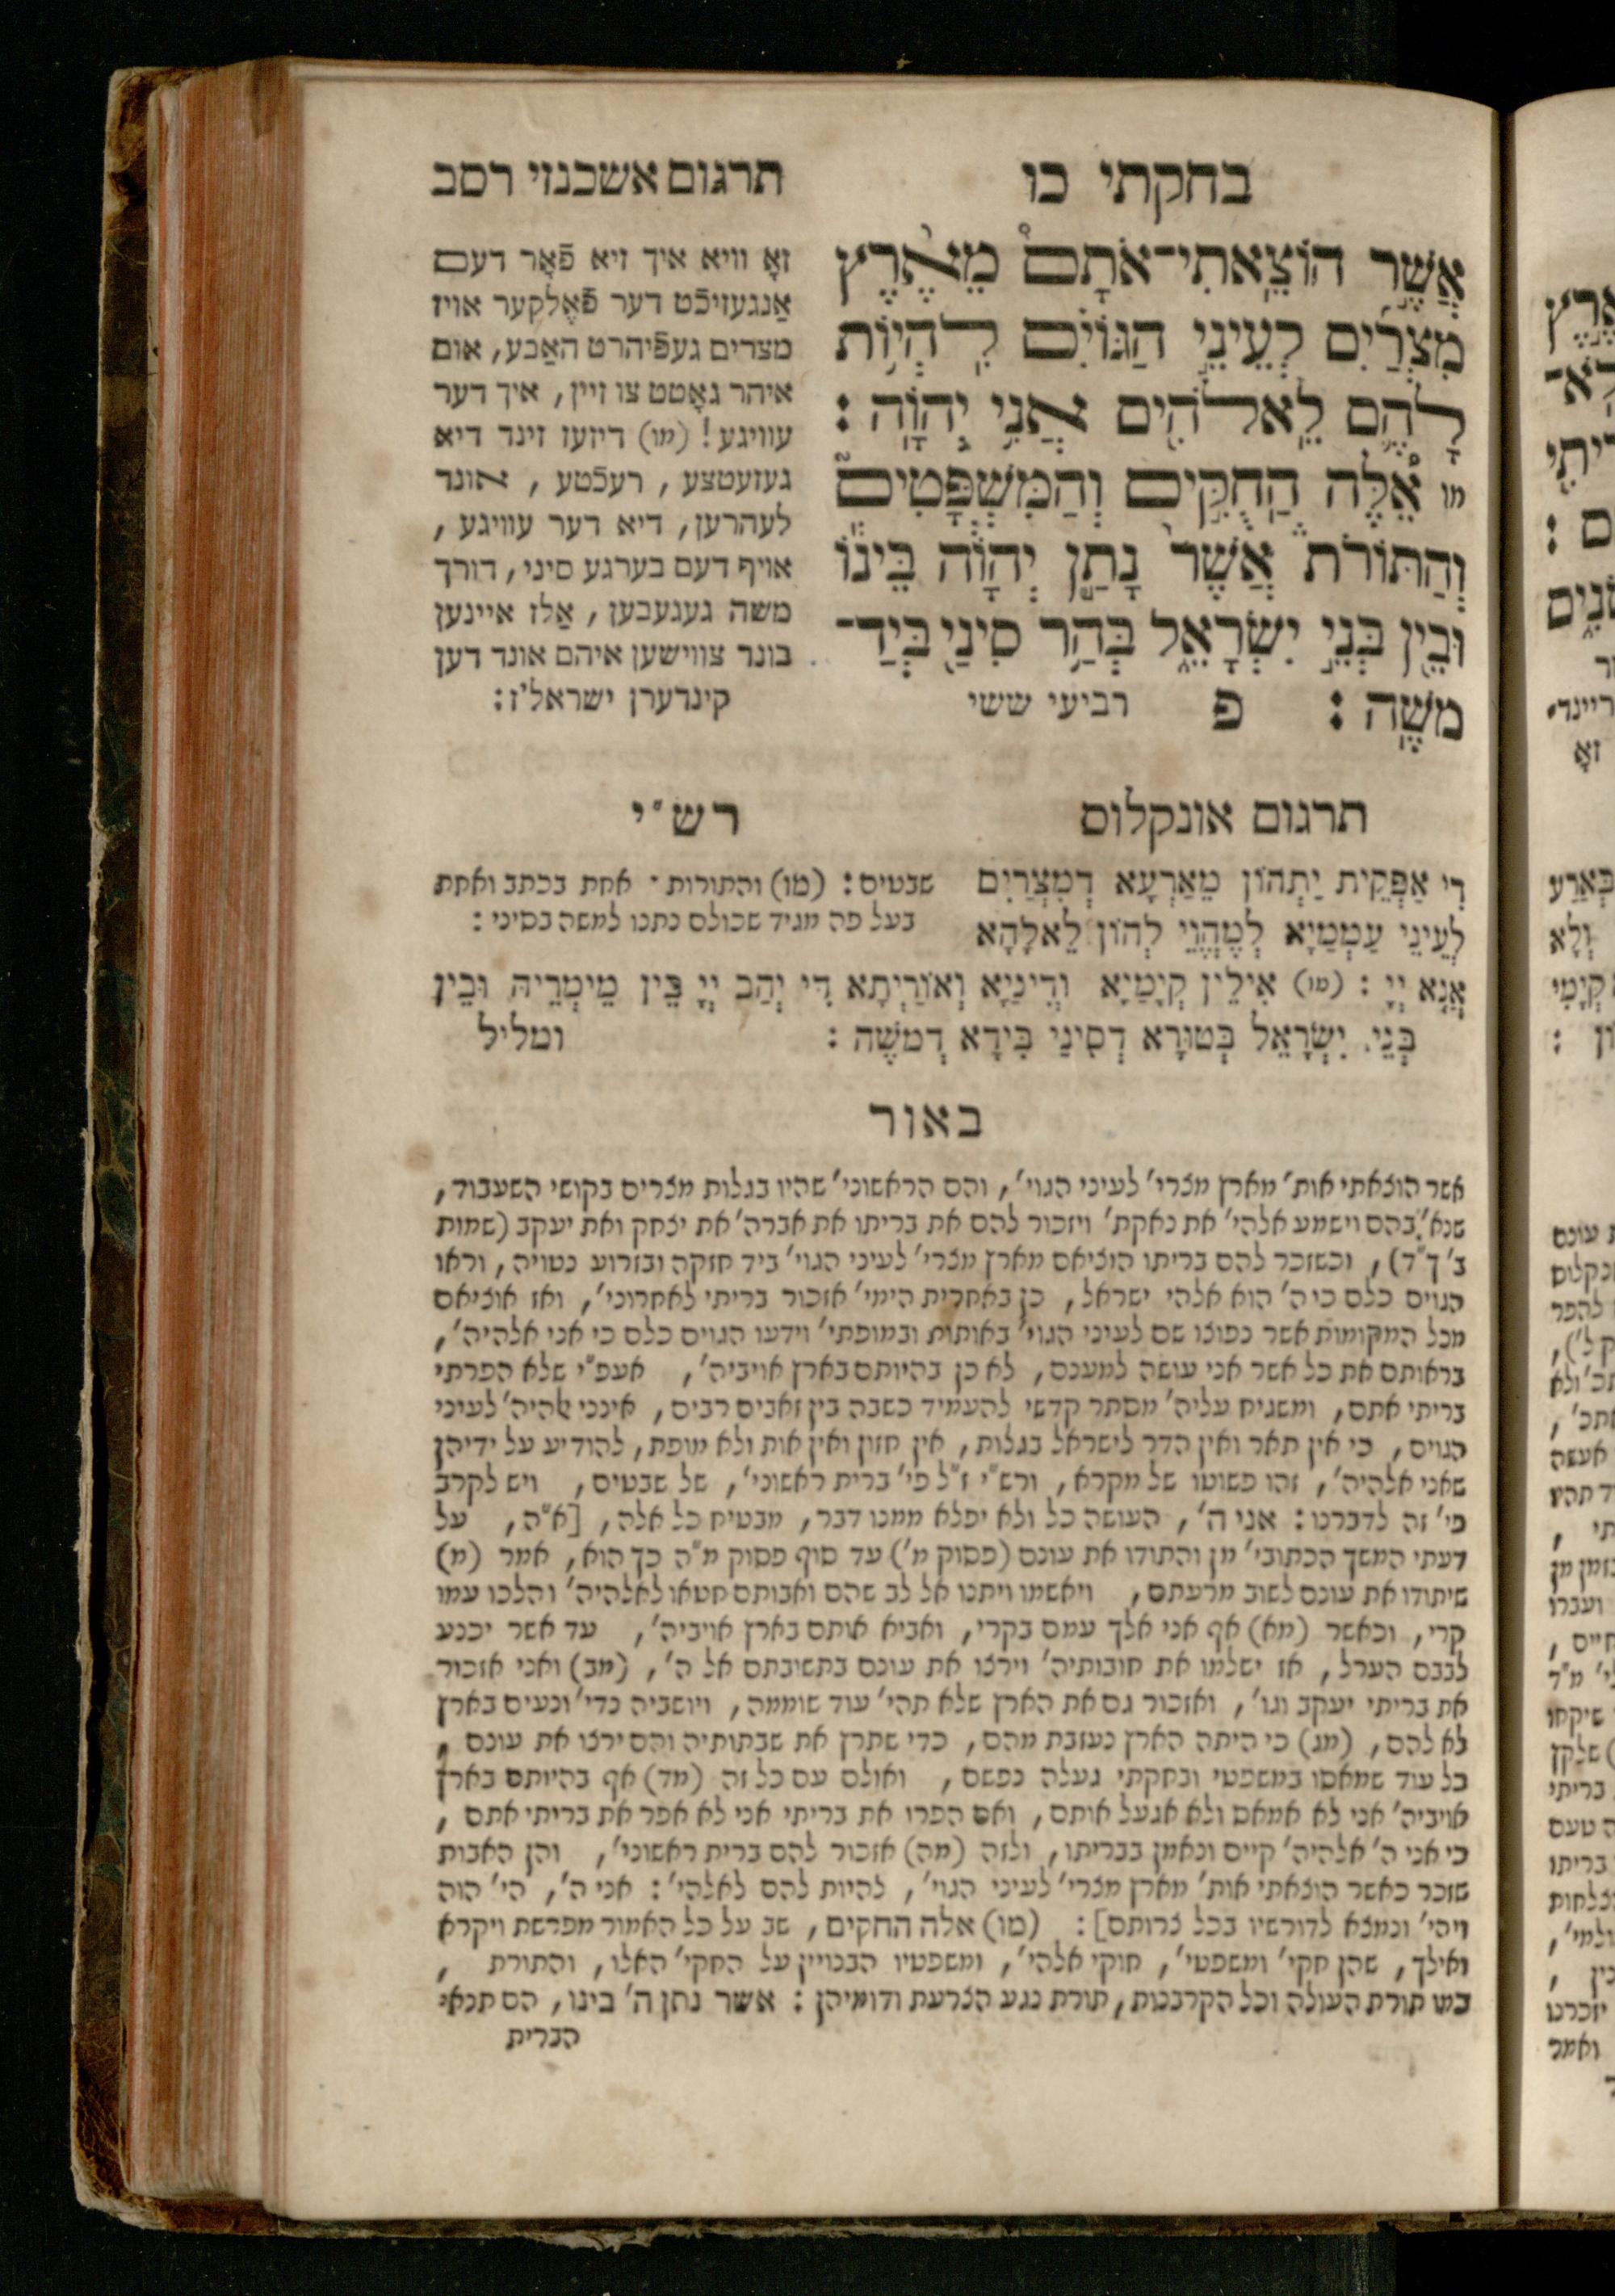 בחקתי כו
תרגום אשכנזי רסב
אֲשֶׁר הוֹצֵאתִי־אֹתָם מֵאֶרֶץ
מִצְרַיִם לְעֵינֵי הַגּוֹיִם לִהְיוֹת
לָהֶם לֵאלֹהִים אֲנִי יְהוָה :
מו אֵלֶּה הַחֻקִּים וְהַמִּשְׁפָּטִים
וְהַתּוֹרֹת אֲשֶׁר נָתַן יְהוָה בֵּינוֹ
וּבֵין בְּנֵי יִשְׂרָאֵל בְּהַר סִינַי בְּיַד־
משֶׁה : פ רביעי ששי
זאָ וויא איך זיא פֿאָר דעם
אַנגעזיכֿט דער פֿאֶלקער אויז
מצרים געפֿיהרט האַבע, אום
איהר גאָטט צו זיין, איך דער
עוויגע! (מו) דיזעז זינד דיא
געזעטצע, רעכֿטע, אונד
לעהרען, דיא דער עוויגע,
אויף דעם בערגע סיני, דורך
משה געגעבען, אַלז איינען
בונד צווישען איהם אונד דען
קינדערן ישראל'ז:
תרגום אונקלוס
דִי אַפְּקֵית יַתְהוֹן מֵאַרְעָא דְמִצְרַיִם
לְעֵינֵי עַמְמַיָא לְמֶהֱוֵי לְהוֹן לֵאלָהָא
אֲנָא יְיָ : (מו) אִילֵין קְיָמַיָא וְדִינַיָא וְאוֹרַיְתָא דִי יְהַב יְיָ בֵּין מֵימְרֵיהּ וּבֵין
בְּנֵי יִשְׂרָאֵל בְּטוּרָא דְסִינַי בִּידָא דְמֹשֶׁה :
ומליל
רש"י
שבטים: (מו) והתורות ־ אחת בכתב ואחת
בעל פה מגיד שכולם נתנו למשה בסיני :
באור
אשר הוצאתי אות' מארץ מצרי' לעיני הגוי', והם הראשוני' שהיו בגלות מצרים בקושי השעבוד,
שנא' בהם וישמע אלהי' את נאקת' ויזכור להם את בריתו את אברה' את יצחק ואת יעקב (שמות
ב' ך"ד), וכשזכר להם בריתו הוציאם מארץ מצרי' לעיני הגוי' ביד חזקה ובזרוע נטויה, וראו
הגוים כלם כי ה' הוא אלהי ישראל, כן באחרית הימי' אזכור בריתי לאחרוני', ואז אוציאם
מכל המקומות אשר נפוצו שם לעיני הגוי' באותות ובמופתי' וידעו הגוים כלם כי אני אלהיה',
בראותם את כל אשר אני עושה למענם, לא כן בהיותם בארץ אויביה', אעפ"י שלא הפרתי
בריתי אתם, ומשגיח עליה' מסתר קדשי להעמיד כשבה בין זאבים רבים, אינני אלהיה' לעיני
הגוים, כי אין תאר ואין הדר לישראל בגלות, אין חזון ואין אות ולא מופת, להודיע על ידיהן
שאני אלהיה', זהו פשוטו של מקרא, ורש"י ז"ל פי' ברית ראשוני', של שבטים, ויש לקרב
פי' זה לדברנו: אני ה', העושה כל ולא יפלא ממנו דבר, מבטיח כל אלה, [א"ה, על
דעתי המשך הכתובי' מן והתודו את עונם (פסוק מ') עד סוף פסוק מ"ה כך הוא, אמר (מ)
שיתודו את עונם לשוב מרעתם, ויאשמו ויתנו אל לב שהם ואבותם חטאו לאלהיה' והלכו עמו
קרי, וכאשר (מא) אף אני אלך עמם בקרי, ואביא אותם בארץ אויביה', עד אשר יכנע
לבבם הערל, אז ישלמו את חובותיה' וירצו את עונם בתשובתם אל ה', (מב) ואני אזכור
את בריתי יעקב וגו', ואזכור גם את הארץ שלא תהי' עוד שוממה, ויושביה נדי' ונעים בארץ
לא להם, (מג) כי היתה הארץ נעזבת מהם, כדי שתרץ את שבתותיה והם ירצו את עונם,
כל עוד שמאסו במשפטי ובחקתי געלה נפשם, ואולם עם כל זה (מד) אף בהיותם בארץ
אויביה' אני לא אמאם ולא אגעל אותם, ואם הפרו את בריתי אני לא אפר את בריתי אתם,
כי אני ה' אלהיה' קיים ונאמן בבריתו, ולזה (מה) אזכור להם ברית ראשוני', והן האבות
שזכר כאשר הוצאתי אות' מארץ מצרי' לעיני הגוי', להיות להם לאלהי': אני ה', הי' הוה
ויהי' ונמצא לדורשיו בכל צרותם]: (מו) אלה החקים, שב על כל האמור מפרשת ויקרא
ואילך, שהן חקי' ומשפטי', חוקי אלהי', ומשפטיו הבנויין על החקי' האלו, והתורת,
כמו תורת העולה וכל הקרבנות, תורת נגע הצרעת ודומיהן: אשר נתן ה' בינו, הם תנאי
הברית